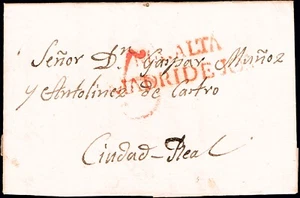 ALTA
Señor Dn. Gaspar Muñoz
y Antolinez de Castro
Ciudad-Real